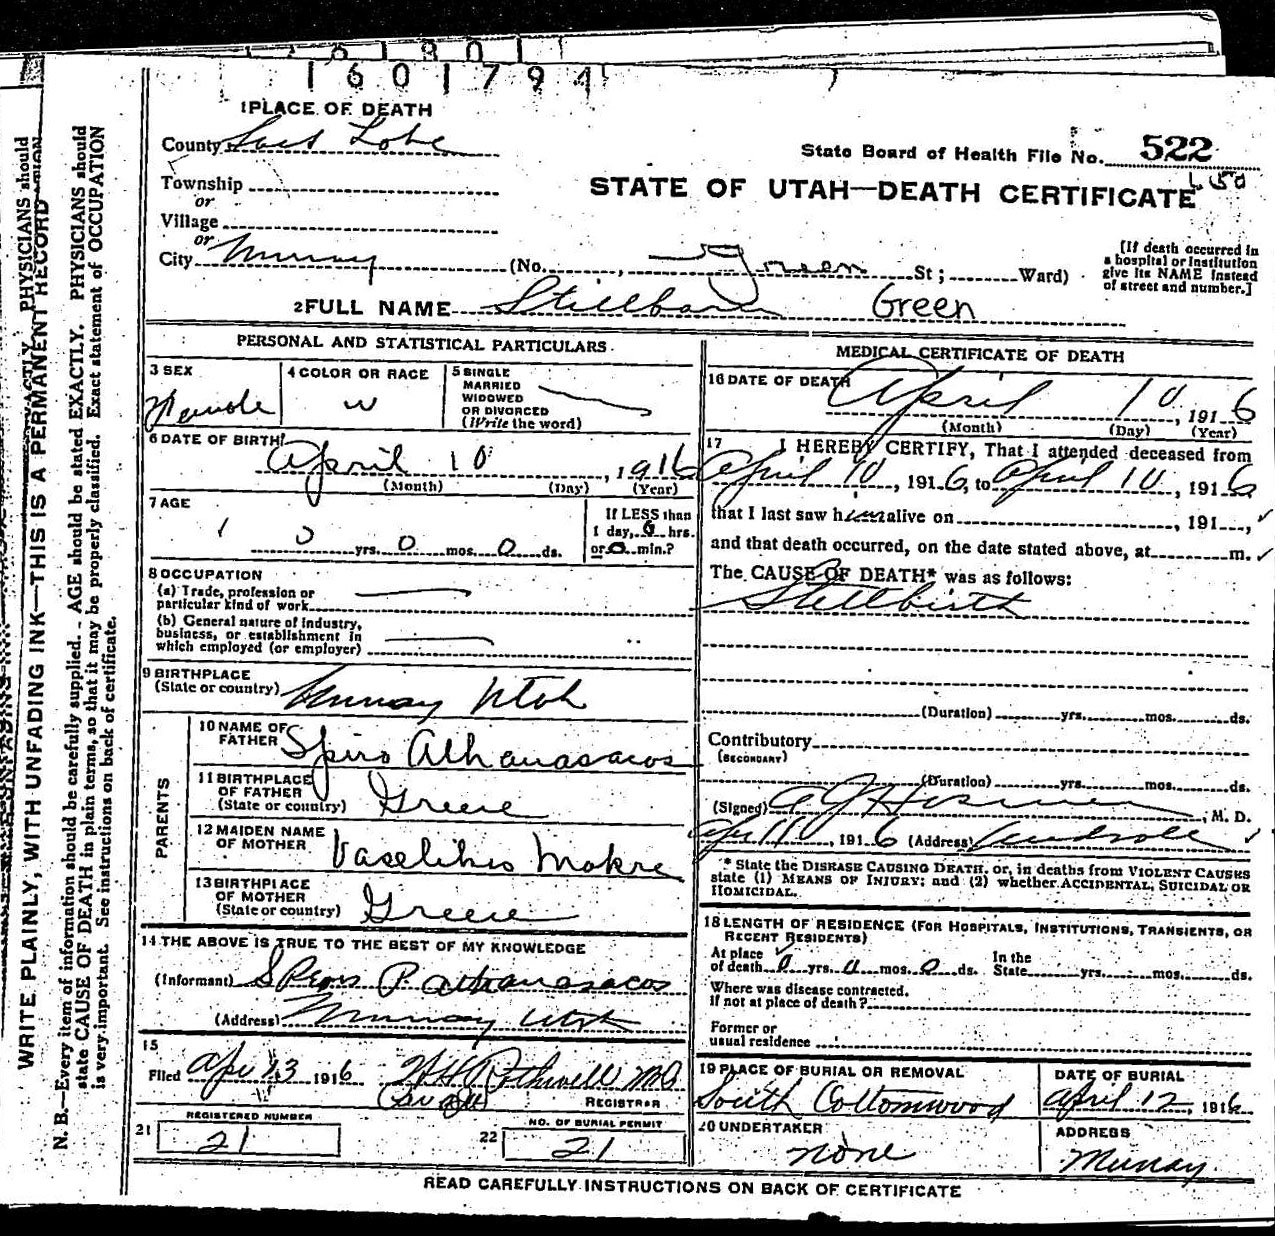 1601794
1 PLACE OF DEATH
County Salt Lake
State Board of Health File No. 522
Township
or
STATE OF UTAH—DEATH CERTIFICATE
Village
or
City Murray (No. , Green St; Ward)
[If death occurred in
a hospital or institution
give its NAME instead
of street and number.]
2 FULL NAME Stillborn Green
PERSONAL AND STATISTICAL PARTICULARS
3 SEX
Female
4 COLOR OR RACE
w
5 SINGLE
MARRIED
WIDOWED
OR DIVORCED
(Write the word)
6 DATE OF BIRTH
April 10, 1916
(Month) (Day) (Year)
7 AGE
0 yrs. 0 mos. 0 ds.
If LESS than
1 day, 6 hrs.
or 0 min.?
8 OCCUPATION
(a) Trade, profession or
particular kind of work
(b) General nature of industry,
business, or establishment in
which employed (or employer)
9 BIRTHPLACE
(State or country) Murray Utah
PARENTS
10 NAME OF
FATHER Spiro Athanasacos
11 BIRTHPLACE
OF FATHER
(State or country) Greece
12 MAIDEN NAME
OF MOTHER Vaselikis Makre
13 BIRTHPLACE
OF MOTHER
(State or country) Greece
14 THE ABOVE IS TRUE TO THE BEST OF MY KNOWLEDGE
(Informant) Spiros P. Athanasacos
(Address) Murray Utah
15
Filed Apr 13 1916 Rothwell MD
REGISTRAR
REGISTERED NUMBER
21 21
NO. OF BURIAL PERMIT
22 21
MEDICAL CERTIFICATE OF DEATH
16 DATE OF DEATH
April 10, 1916
(Month) (Day) (Year)
17 I HEREBY CERTIFY, That I attended deceased from
April 10, 1916, to April 10, 1916
that I last saw h alive on , 191 ,
and that death occurred, on the date stated above, at m.
The CAUSE OF DEATH* was as follows:
Stillbirth
(Duration) yrs. mos. ds.
Contributory
(SECONDARY)
(Duration) yrs. mos. ds.
(Signed) , M. D.
Apr 11, 1916 (Address)
* State the DISEASE CAUSING DEATH, or, in deaths from VIOLENT CAUSES
state (1) MEANS OF INJURY; and (2) whether ACCIDENTAL, SUICIDAL OR
HOMICIDAL.
18 LENGTH OF RESIDENCE (FOR HOSPITALS, INSTITUTIONS, TRANSIENTS, OR
RECENT RESIDENTS)
At place
of death 0 yrs. 0 mos. 0 ds.
In the
State yrs. mos. ds.
Where was disease contracted.
if not at place of death?
Former or
usual residence
19 PLACE OF BURIAL OR REMOVAL
South Cottonwood
DATE OF BURIAL
April 12, 1916
20 UNDERTAKER
none
ADDRESS
Murray
READ CAREFULLY INSTRUCTIONS ON BACK OF CERTIFICATE
WRITE PLAINLY, WITH UNFADING INK—THIS IS A PERMANENT RECORD
N. B.—Every item of information should be carefully supplied. AGE should be stated EXACTLY. PHYSICIANS should
state CAUSE OF DEATH in plain terms, so that it may be properly classified. Exact statement of OCCUPATION
is very important. See instructions on back of certificate.